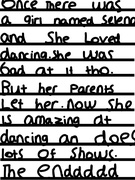 Once there was
a girl named Selena
and She Loved
dancing.she was
bad at it tho.
But her Parents
Let her.now She
is amazing at
dancing an does
lots of Shows.
The enddddd